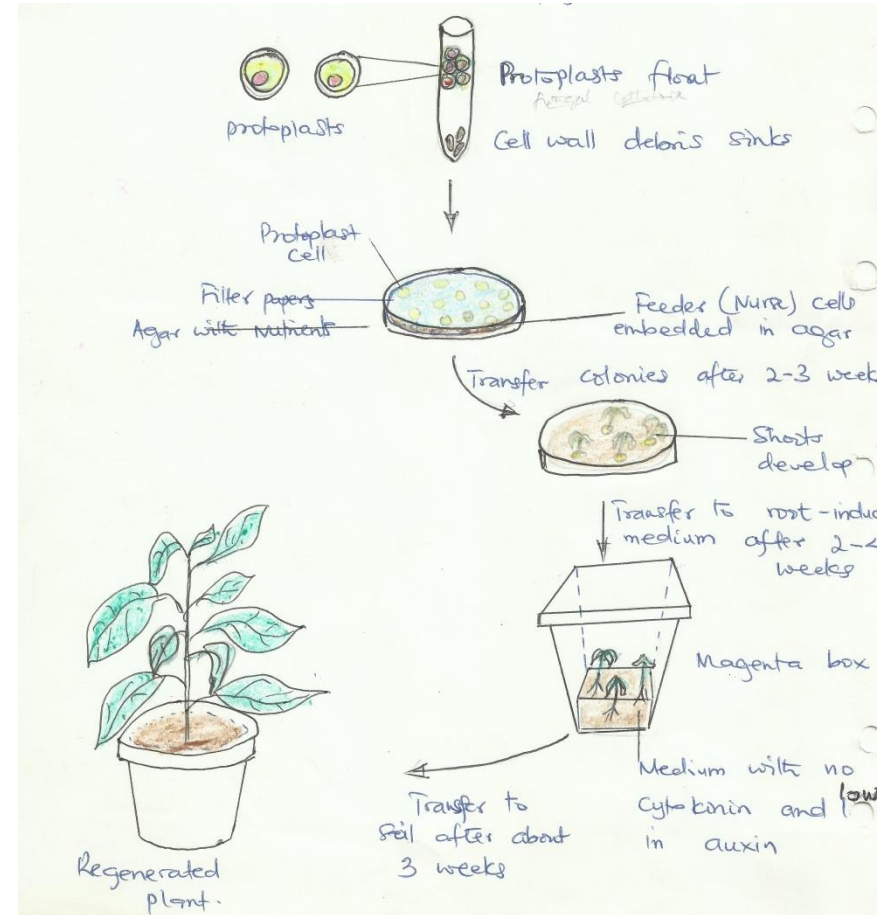 Protoplasts float
protoplasts
Cell wall debris sinks
Protoplast
cell
Filter papers
Agar with Nutrients
Feeder (Nurse) cells
embedded in agar
Transfer colonies after 2-3 week
Shoots
develop
Transfer to root-induc
medium after 2-4
weeks
Magenta box
Medium with no
Cytokinin and low
in auxin
Transfer to
Soil after about
3 weeks
Regenerated
plant.